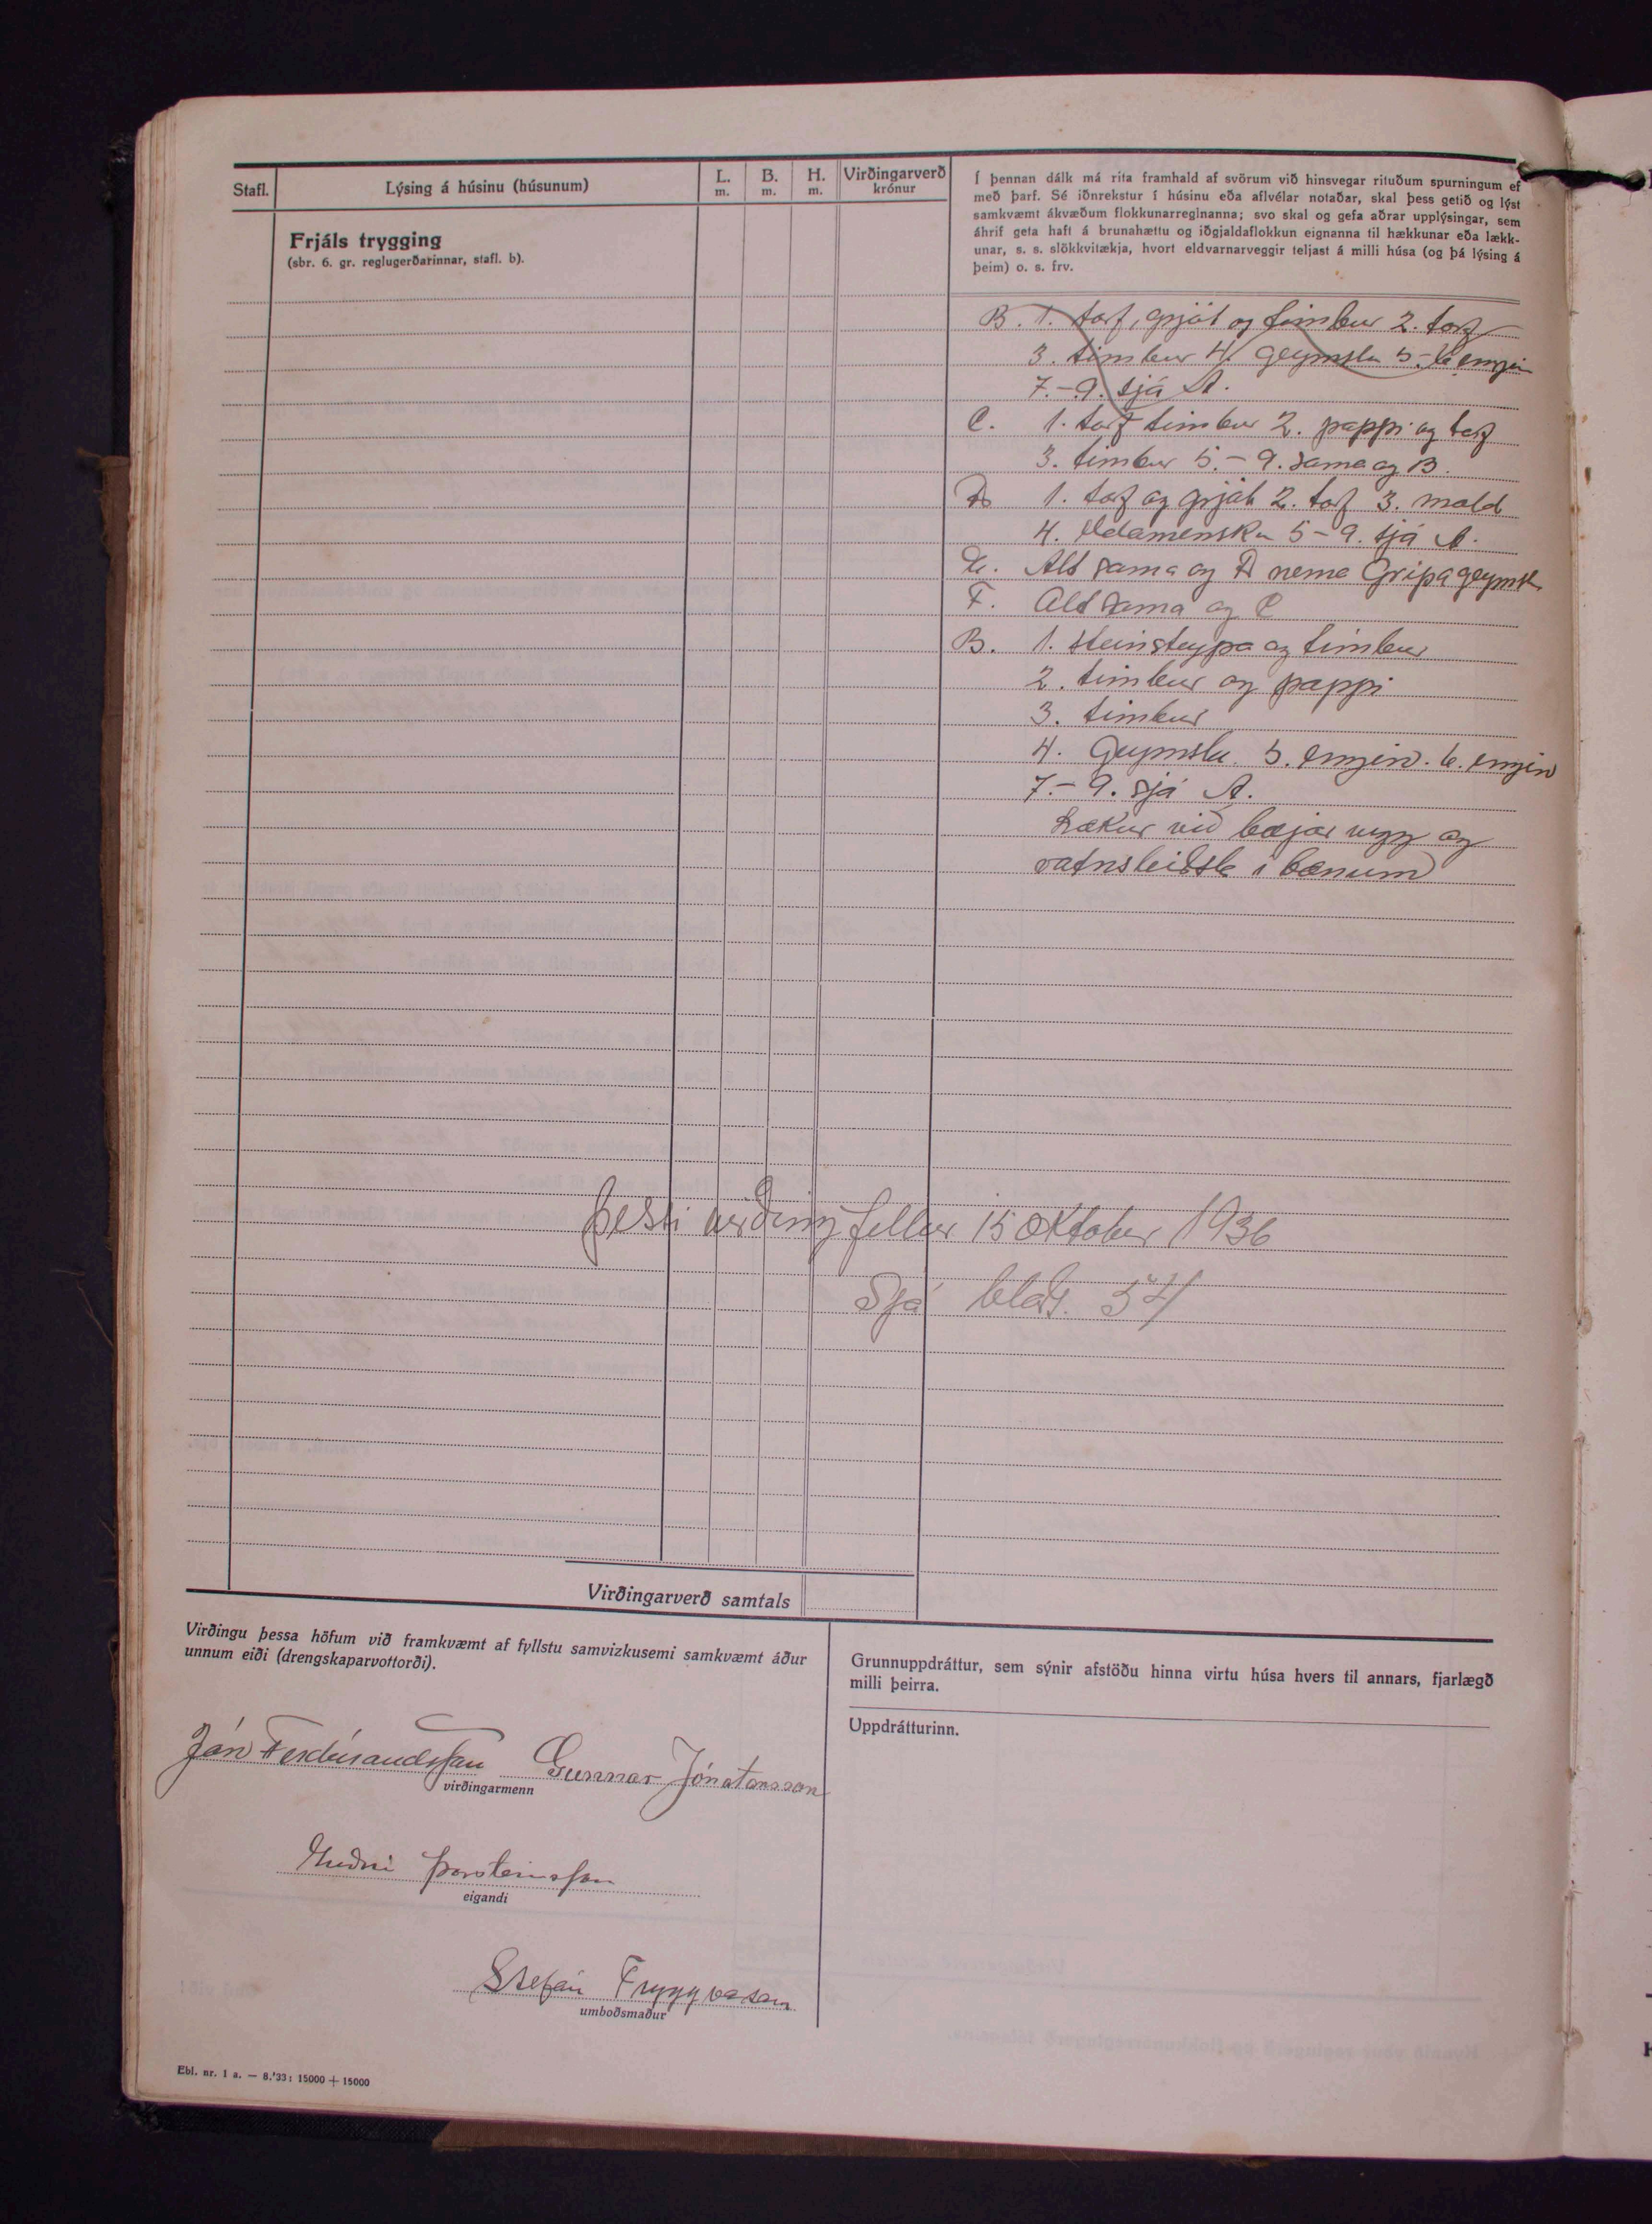 Stafl. Lýsing á húsinu (húsunum) L. m. B. m. H. m. Virðingarverð krónur
Frjáls trygging
(sbr. 6. gr. reglugerðarinnar, stafl. b).
Í þennan dálk má rita framhald af svörum við hinsvegar rituðum spurningum ef
með þarf. Sé iðnrekstur í húsinu eða aflvélar notaðar, skal þess getið og lýst
samkvæmt ákvæðum flokkunarreglnanna; svo skal og gefa aðrar upplýsingar, sem
áhrif geta haft á brunahættu og iðgjaldaflokkun eignanna til hækkunar eða lækk-
unar, s. s. slökkvitækja, hvort eldvarnarveggir teljast á milli húsa (og þá lýsing á
þeim) o. s. frv.
B. 1. torf, grjót og timbur 2. torf
3. timbur 4. geymsla 5-6 engin
7.-9. sjá A.
C. 1. torf timbur 2. pappi og torf
3. timbur 5.-9. sama og B.
D 1. torf og grjót 2. torf 3. mold
4. Eldamenska 5-9. sjá A.
E. Alt sama og D nema Gripageymsla
F. Alt sama og C
B. 1. steinsteypa og timbur
2. timbur og pappi
3. timbur
4. Geymsla. 5. engin. 6. engin
7.-9. sjá A.
Lækur við bæjarvegg og
vatnsleiðsla í bænum
Þessi virðing fellur 15 oktober 1936
Sjá blds. 54
Virðingarverð samtals
Virðingu þessa höfum við framkvæmt af fyllstu samvizkusemi samkvæmt áður
unnum eiði (drengskaparvottorði).
Jón Ferdinandsson Gunnar Jónatansson
virðingarmenn
Guðni Þorsteinsson
eigandi
Stefán Tryggvason
umboðsmaður
Grunnuppdráttur, sem sýnir afstöðu hinna virtu húsa hvers til annars, fjarlægð
milli þeirra.
Uppdrátturinn.
Ebl. nr. 1 a. — 8.'33: 15000 + 15000